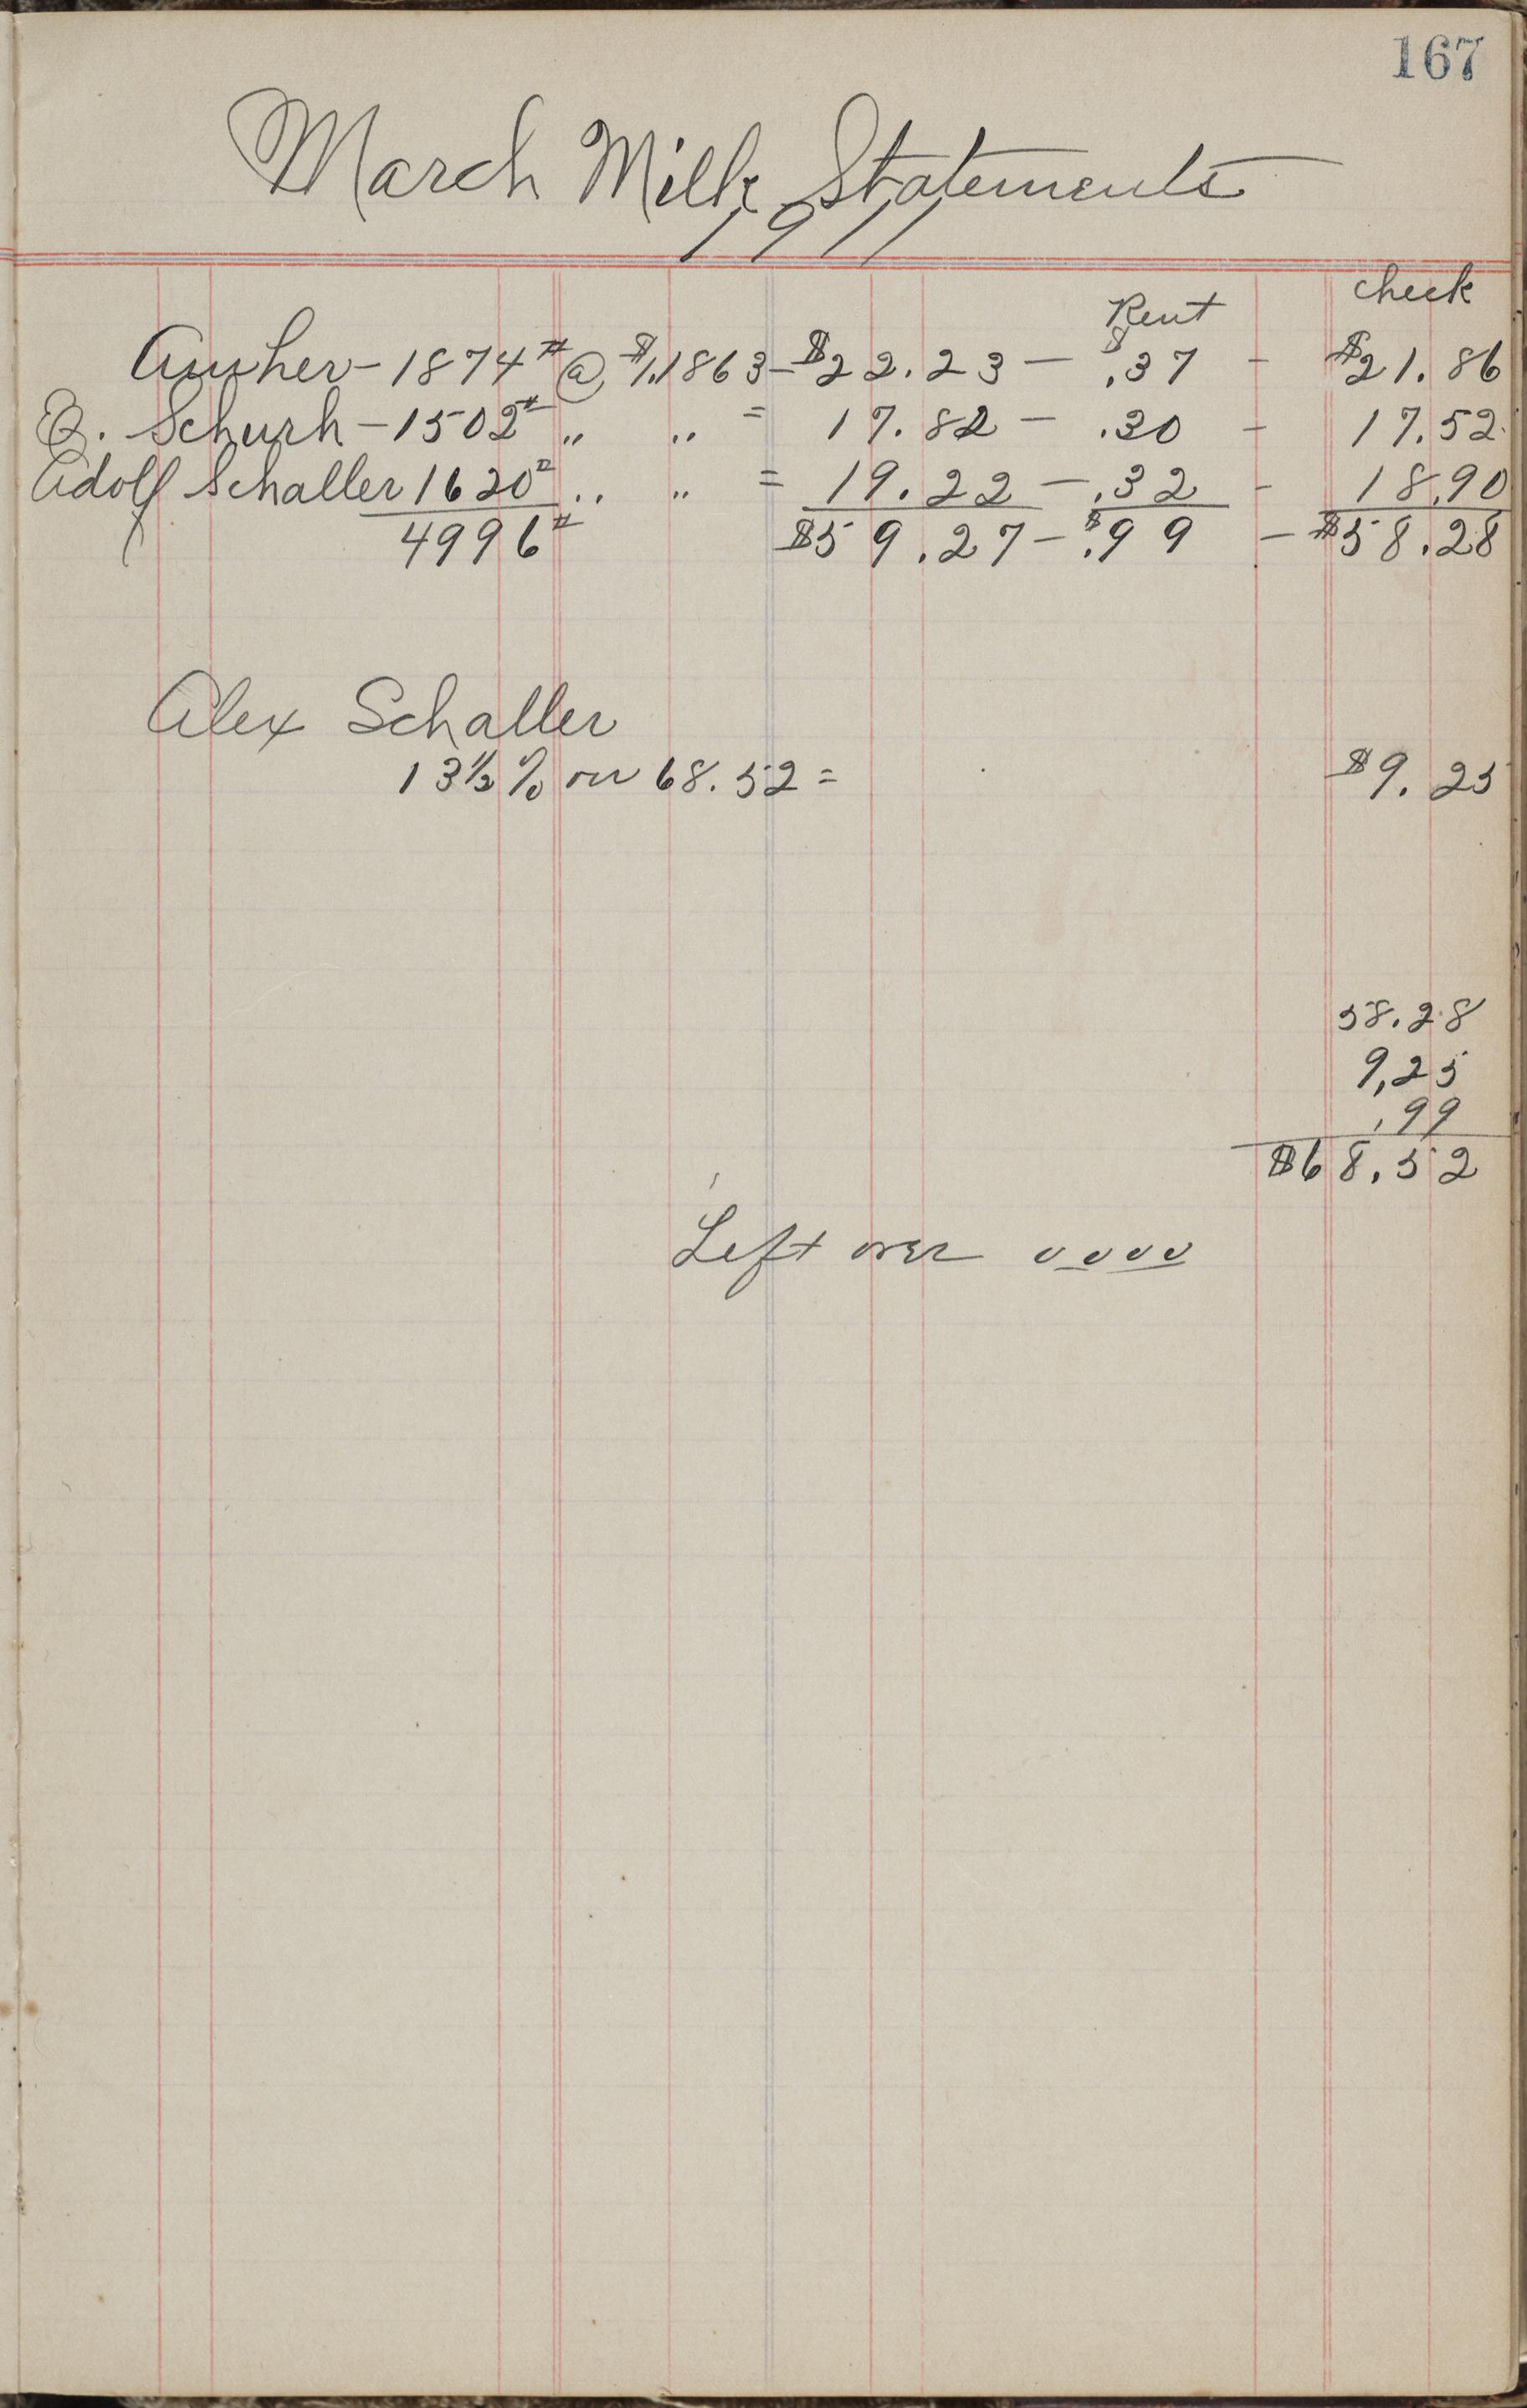 167
March Milk Statements
1911
Rent check
Amher - 1874# @ $1.1863 - $22.23 - $.37 - $21.86
Schurh - 1502# " " = 17.82 - .30 - 17.52
Adolf Schaller 1620# " " = 19.22 - .32 - 18.90
4996# $59.27 - $.99 - $58.28
Alex Schaller
13½% on 68.52 = $9.25
58.28
9.25
.99
$68.52
Left over 0000